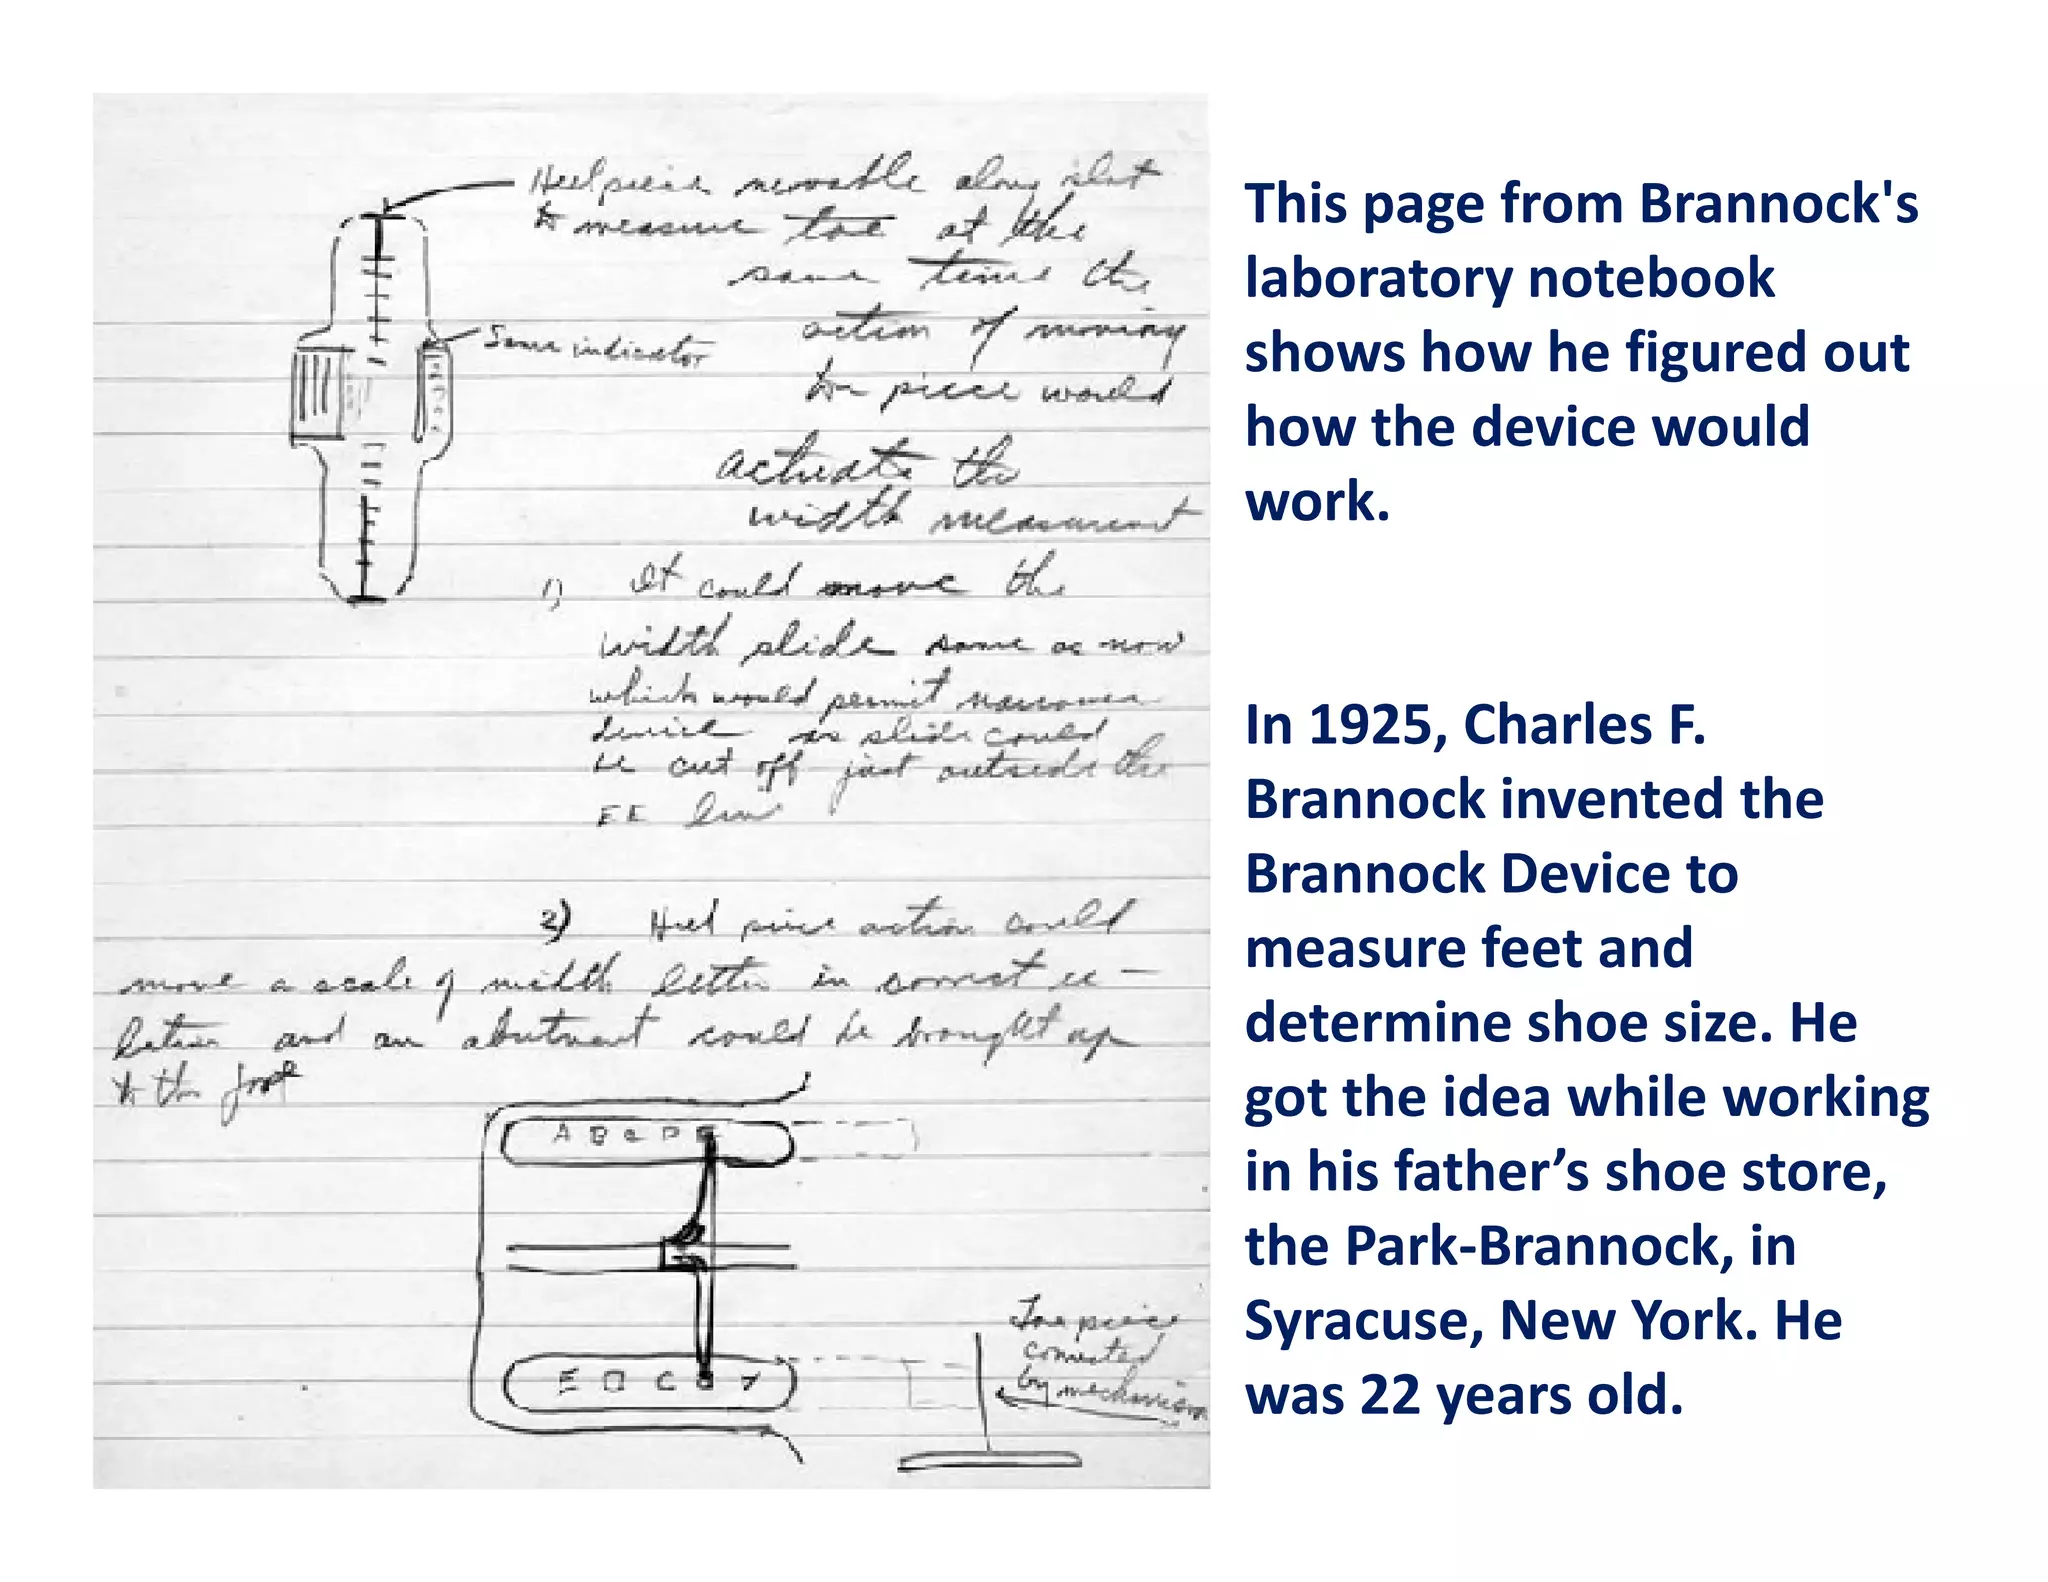 Heel piece movable along slot
to measure toe at the
same time the
action of moving
toe piece would
actuate the
width measurement
Same indicator
1) It could move the
width slide same as now
which would permit narrower
device as slide could
be cut off just outside the
EE line
2) Heel piece action could
move a scale of width letter in correct re-
lation and an abutment could be brought up
to the foot
A B C D E
E D C B
Toe piece
connected
by mechanism
This page from Brannock's
laboratory notebook
shows how he figured out
how the device would
work.
In 1925, Charles F.
Brannock invented the
Brannock Device to
measure feet and
determine shoe size. He
got the idea while working
in his father’s shoe store,
the Park-Brannock, in
Syracuse, New York. He
was 22 years old.